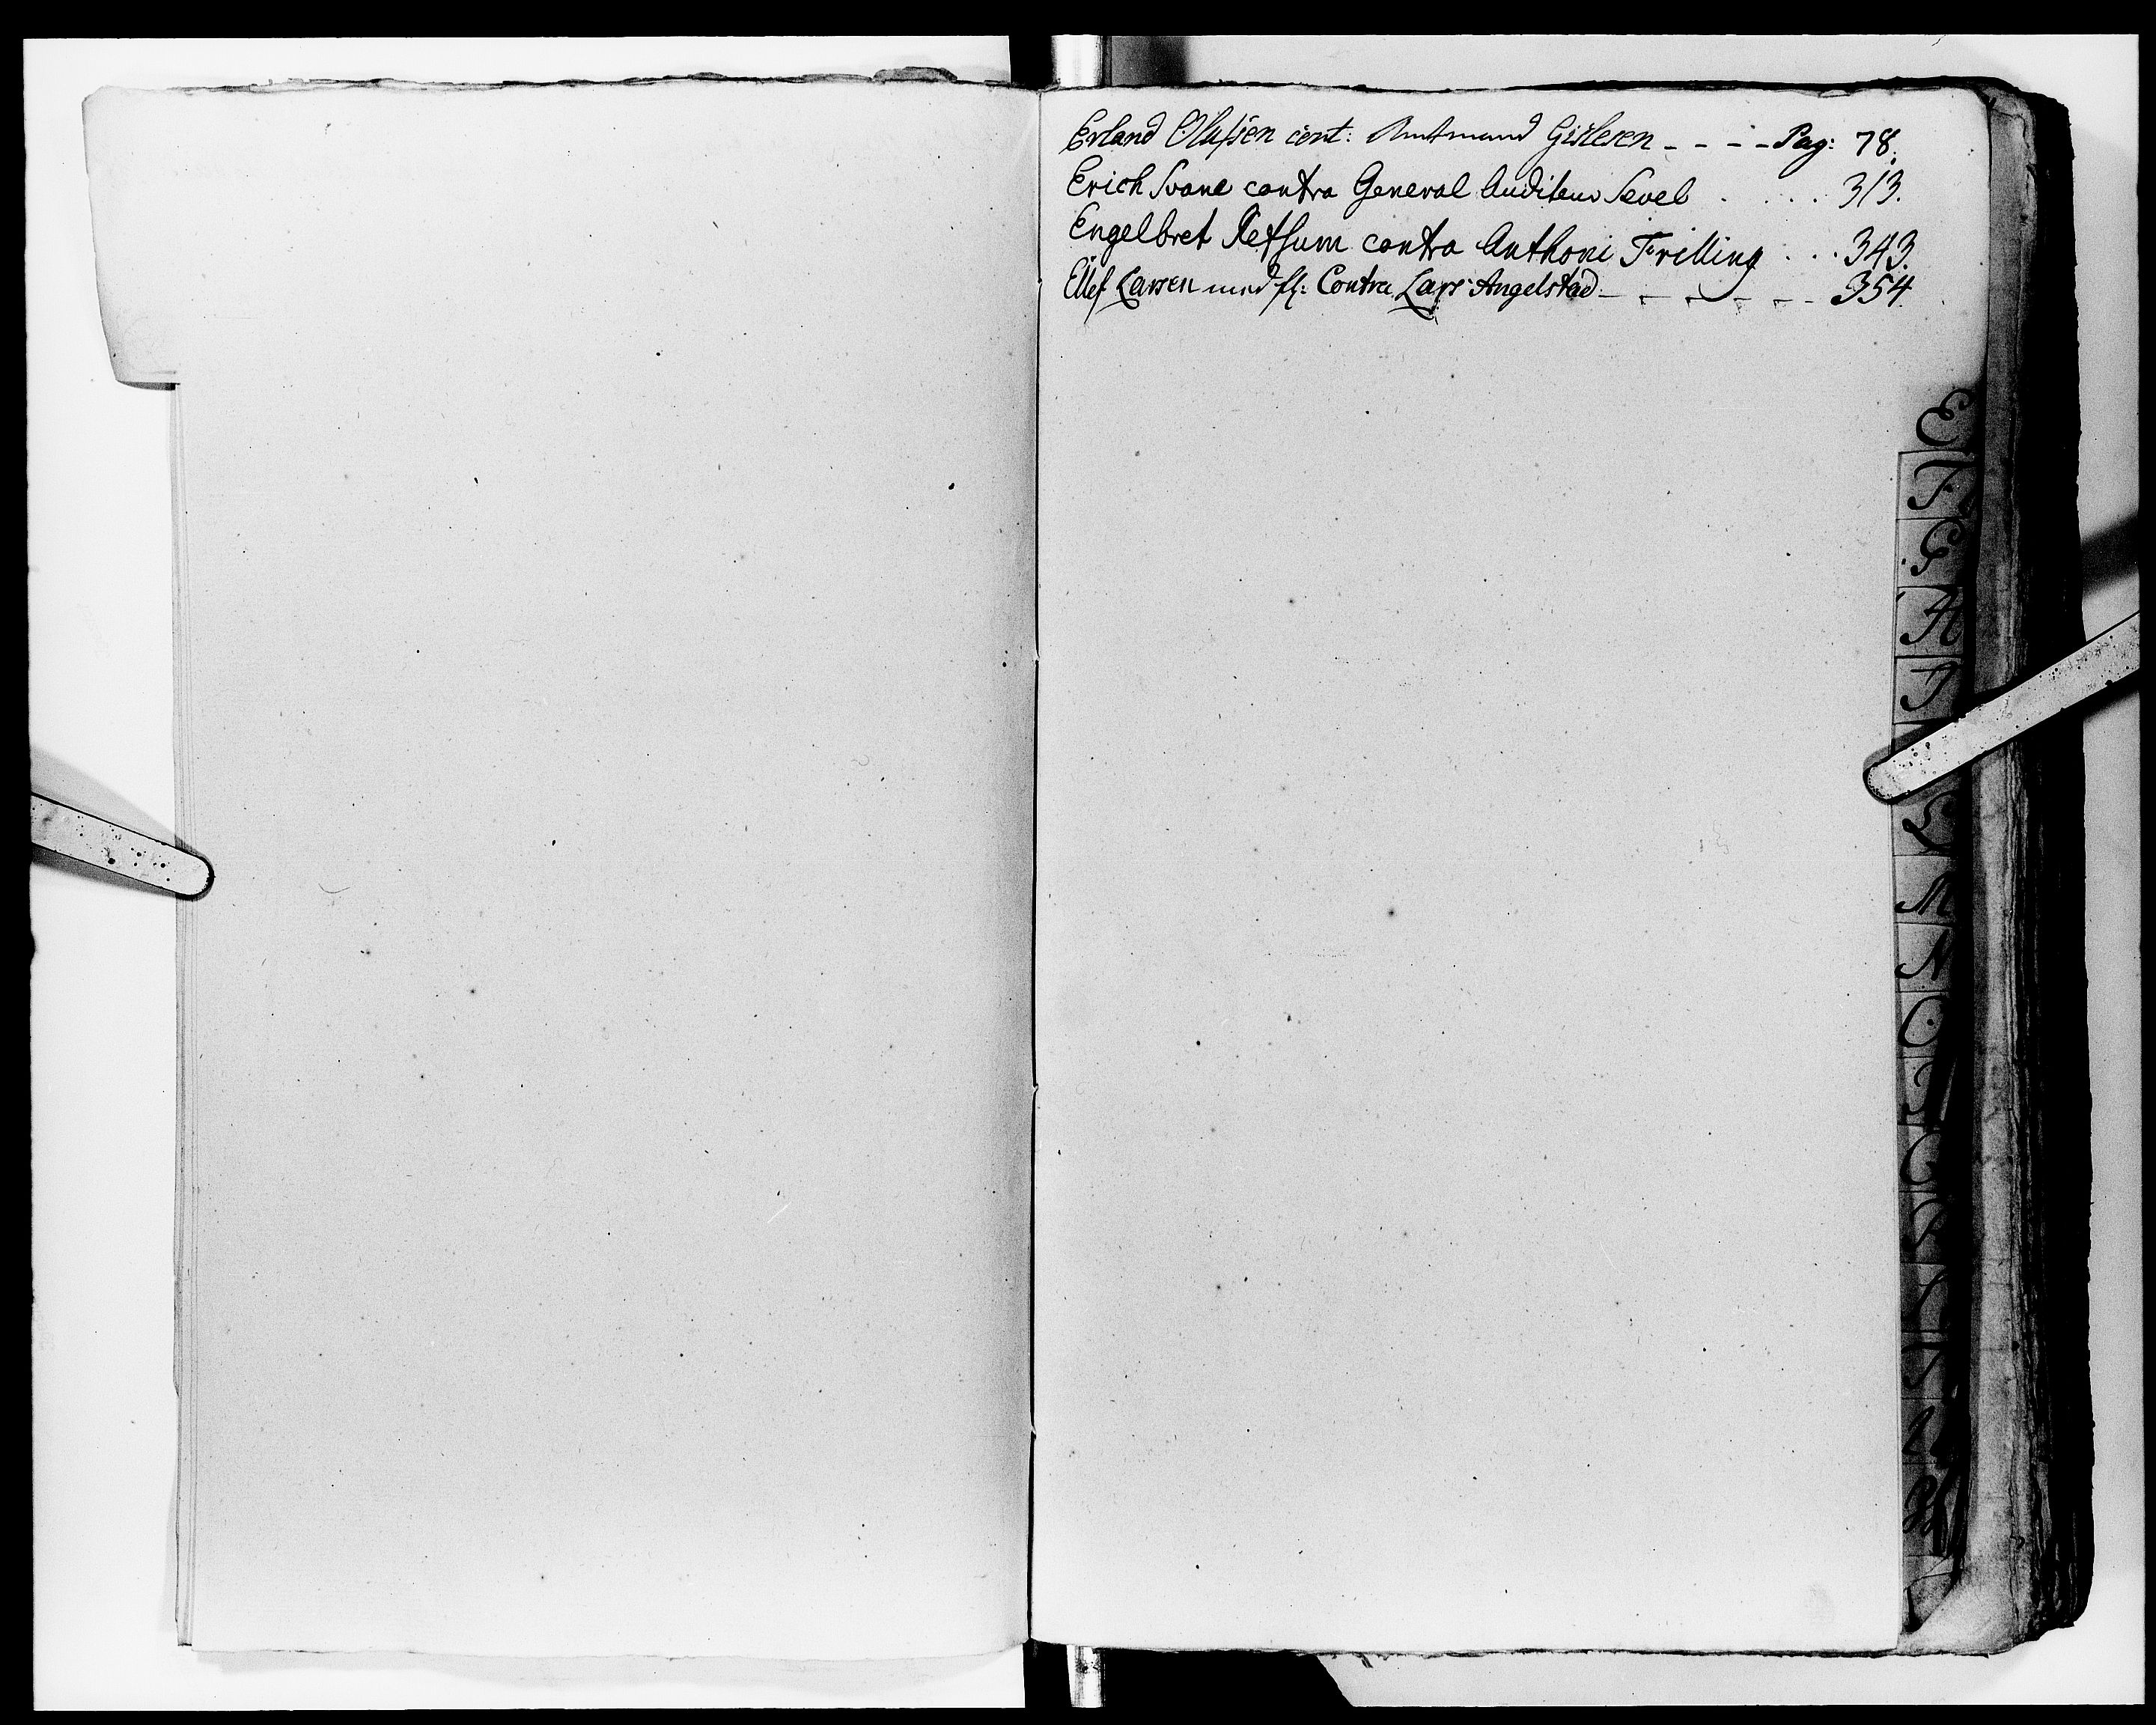 Erland Olufsen cont: Amtmand Gislesen - - - - Pag: 78.
Erich Svane contra General Auditeur Sevel . . . . 313.
Engelbret Retsum contra Anthoni Trilling . . . 343.
Ellef Larsen med fl: Contra Lars Angelstad - - - - - - 354.
E